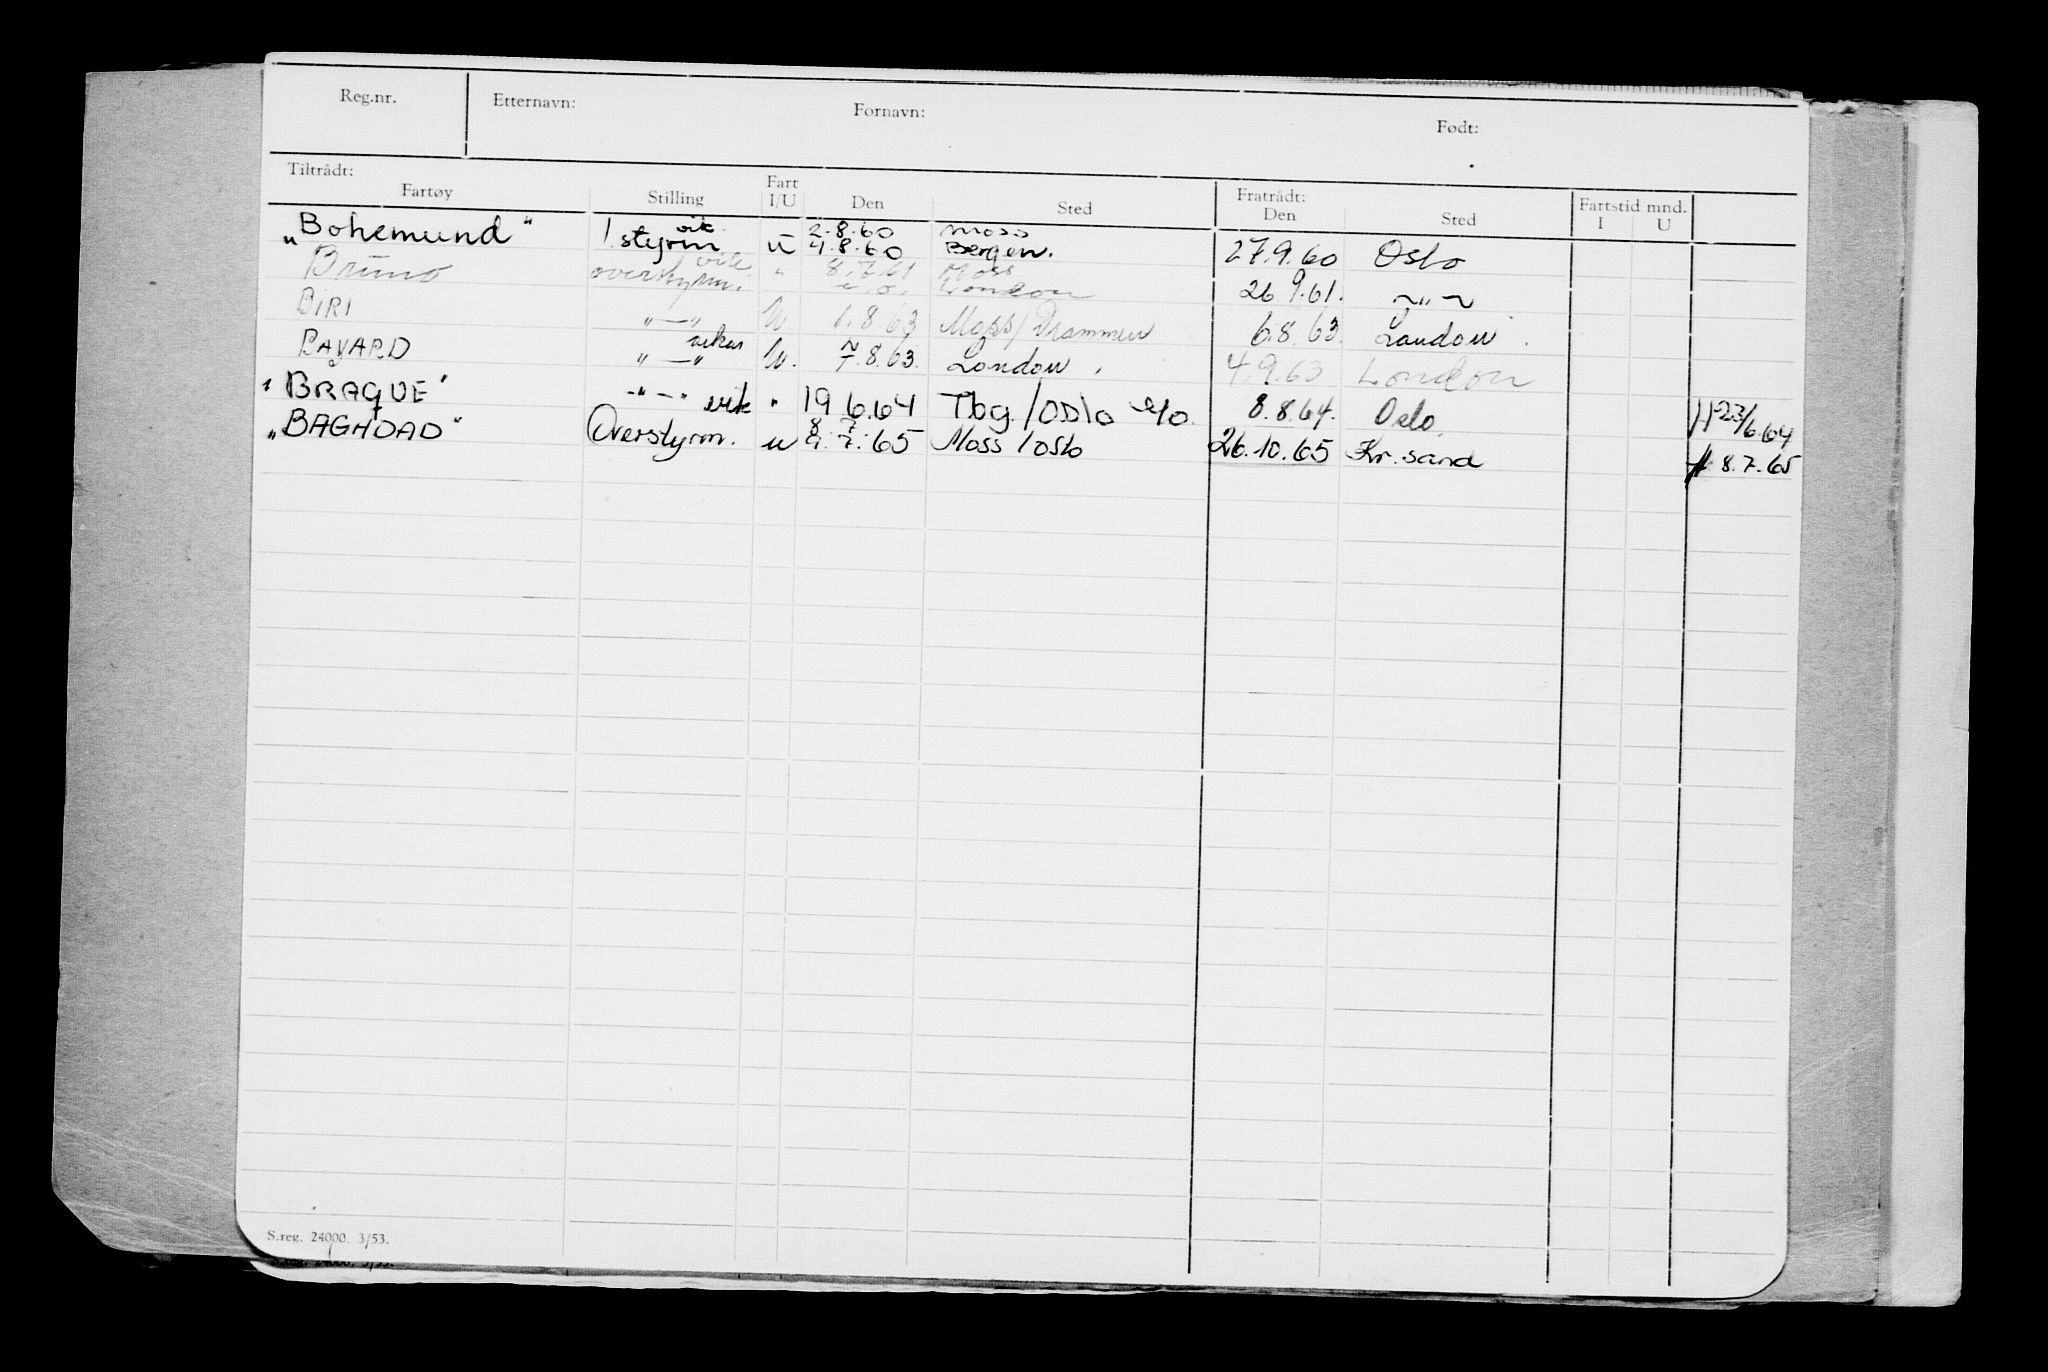 Reg.nr. Etternavn: Fornavn: Født:
Tiltrådt: Fratrådt: Fartstid mnd.
Fartøy Stilling Fart I/U Den Sted Den Sted I U
vik. 2.8.60 Moss
„Bohemund" 1 styrm u 4.8.60 Bergen. 27.9.60 Oslo
vik. 8.7.61 Moss
Bruno overstyrm. " London 26.9.61. ~"~
BIRI "—" U. 1.8.63 Moss/Drammen 6.8.63. London.
vikar
BAYARD "—" U. 7.8.63. London. 4.9.63 London
"BRAQUE" -"-" vik " 19 6.64 Tbg./Oslo 8.8.64. Oslo. 23/6.64
8 7
„BAGHDAD" Overstyrm. u 4.7.65 Moss/Oslo 26.10.65 Kr.sand 8.7.65
S.reg. 24000. 3/53.